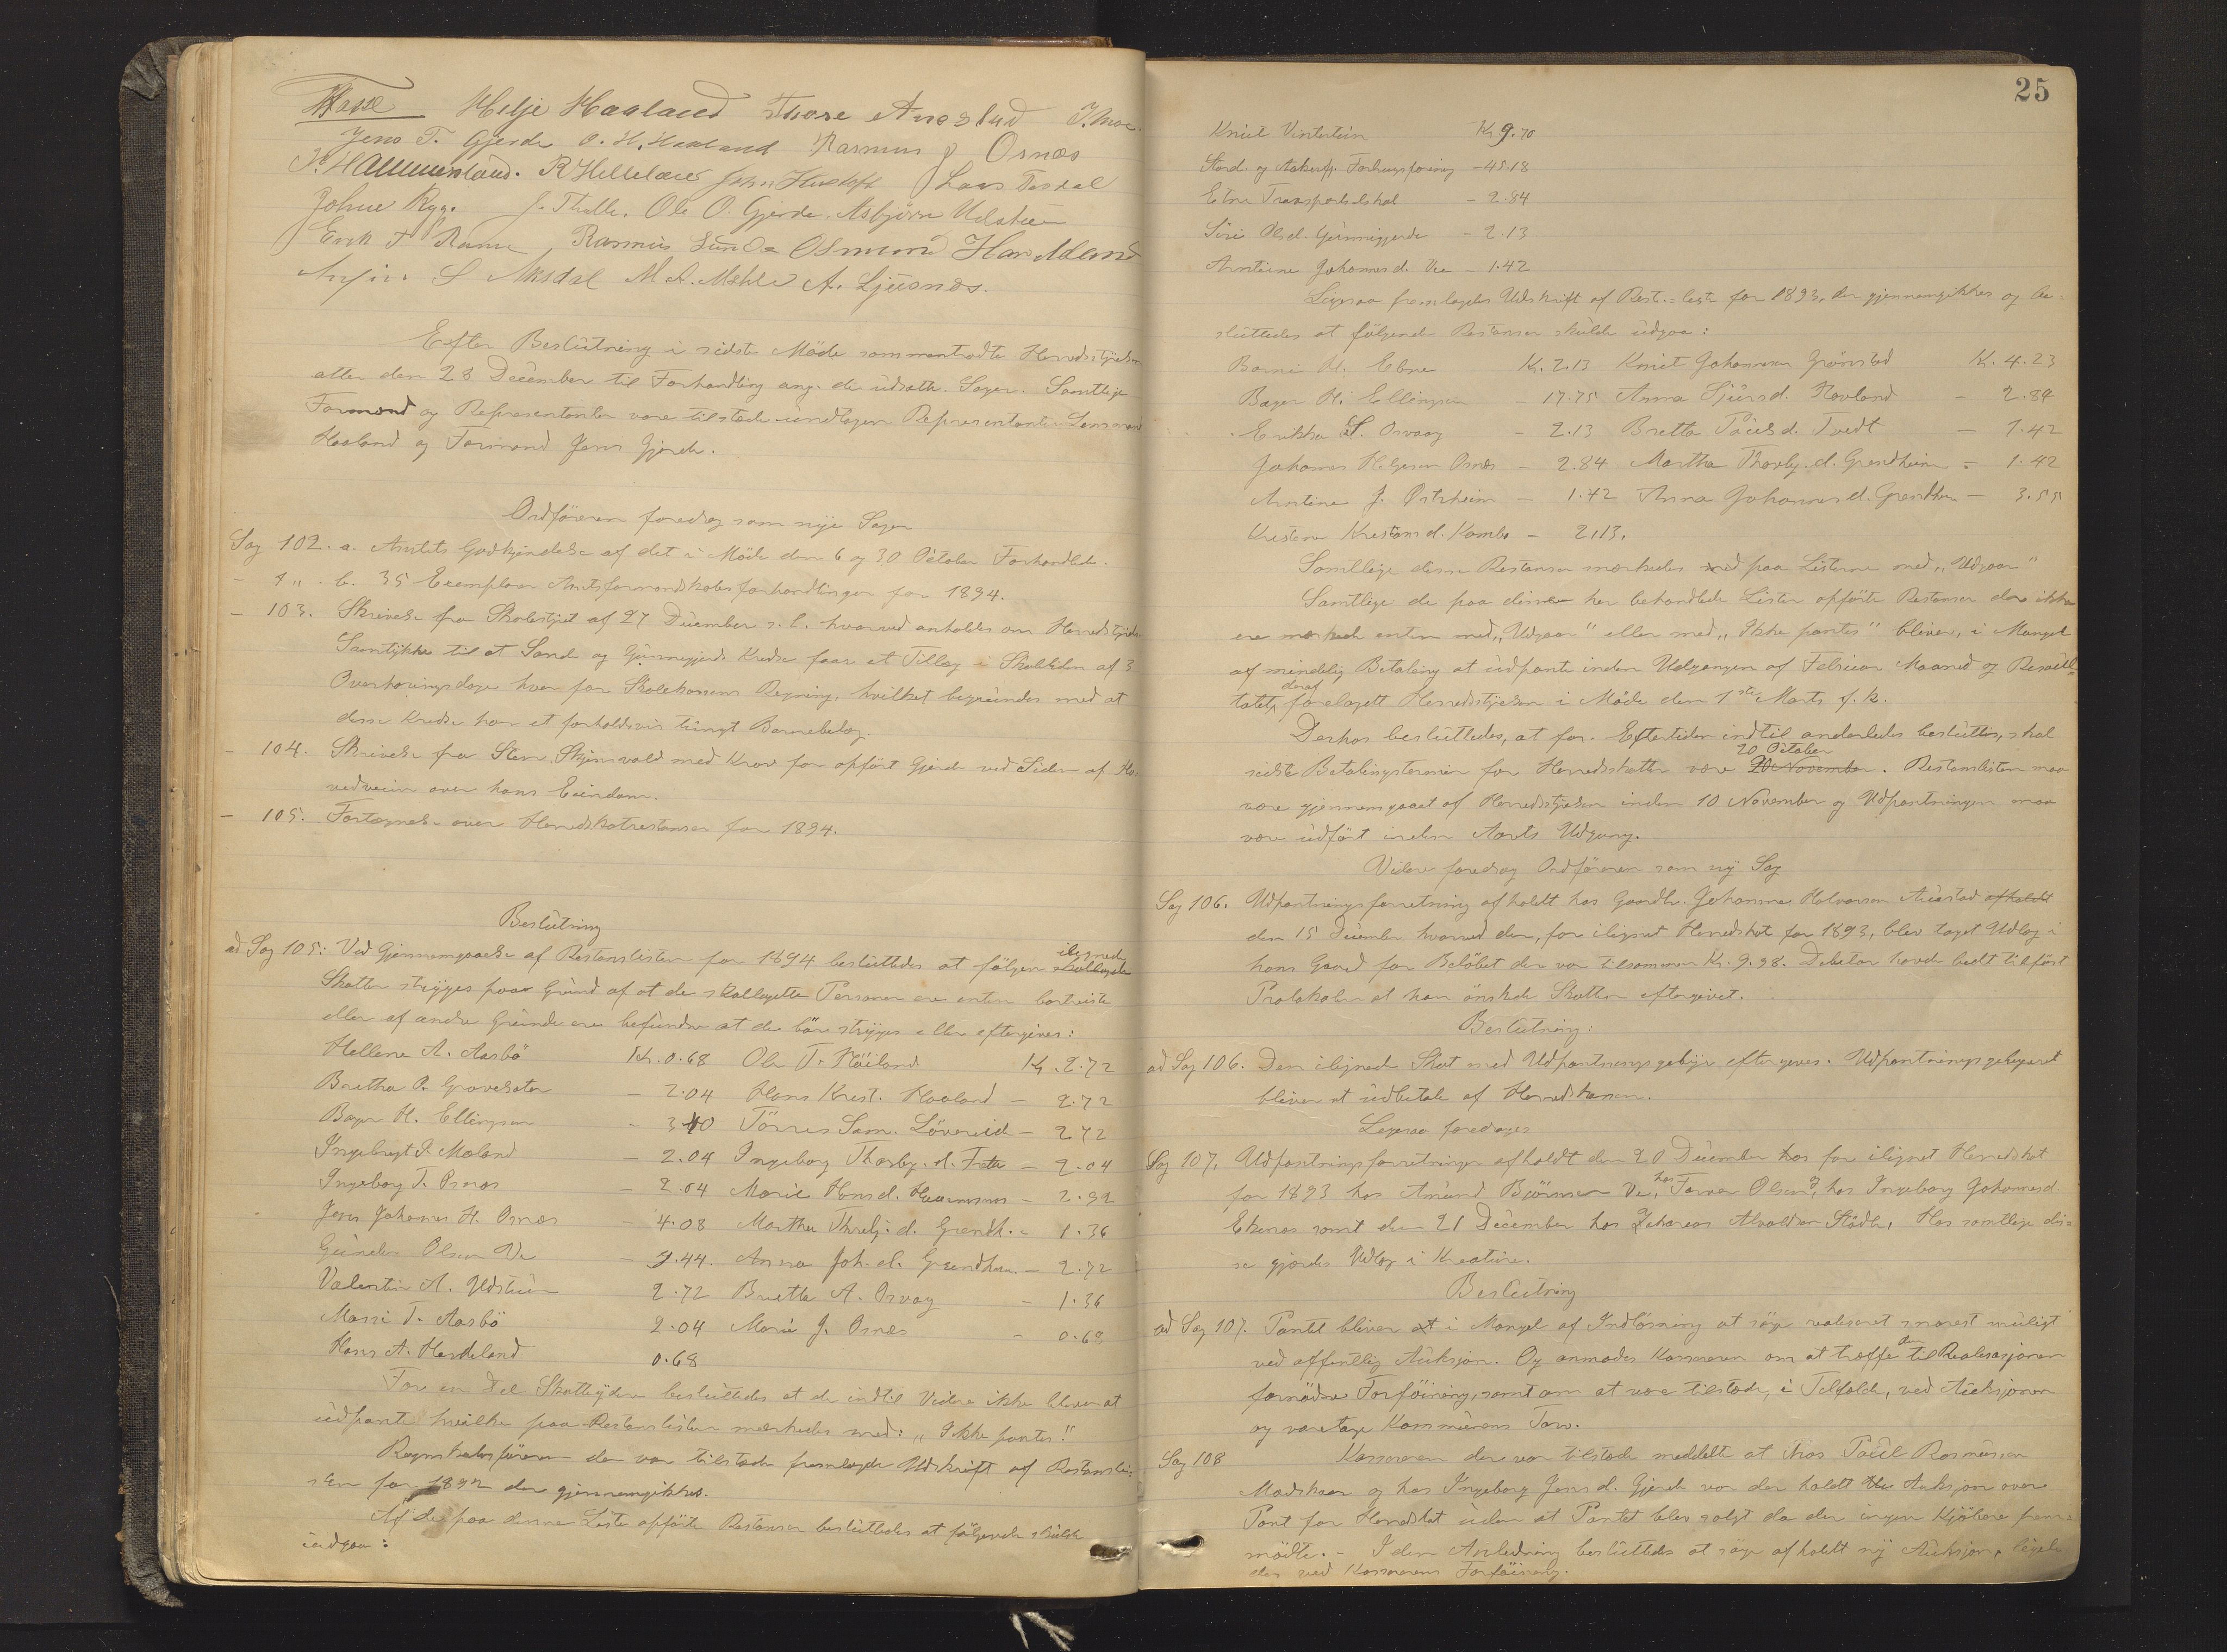 Helje Haaland Thore Austad
Jens T. Gjerde O. H. Haaland Rasmus J Osnes
H. Hammersland. R Helleland John Lars Tesdal
Johne Ryg. J. Tholle. Ole O. Gjerde. Asbjørn Udsteen
Erik T Ramn Rasmus Sunde Osmund Hardeland
S Aksdal M. A. Mehle A. Ljusnes.
Efter Beslutning i sidste Møde sammentraadte Herredsstyrelsen
atter den 28 December til Forhandling ang. de udsatte Sager. Samtlige
Formænd og Repræsentanter vare tilstede undtagen Repræsentanten Lensmand
Haaland og Formand Jens Gjerde.
Ordføreren foredrog som nye Sager
Sag 102. a. Amtets Godkjendelse af det i Møde den 6 og 30 October Forhandlede.
- " - b. 35 Exemplarer Amtsformandskabsforhandlinger for 1894.
- 103. Skrivelse fra Skolestyret af 27 December s. l. hvorved anholdes om Herredsstyrelsens
Samtykke til at Sande og Grinnegjerds Kredse faar et Tillæg i Skoletiden af 3
Overhøringsdage hver for Skolekassens Regning, hvilket begrundes med at
disse Kredse har et forholdsvis tungt Barnebelæg.
- 104. Skrivelse fra Sten Skjensvold med Krav for opført Gjerde ved Siden af Ho-
vedveien over hans Eiendom.
- 105. Fortegnelse over Herredskatrestanser for 1894.
Beslutning
ad Sag 105: Ved Gjennemgaaelse af Restanslisten for 1894 besluttedes at følgende ilignede
Skatter stryges paa Grund af at de skatlagte Personer ere enten bortreiste
eller af andre Grunde ere befundne at de bør stryges eller eftergives:
Hellene A. Aasbø Kr. 0.68 Ole T. Høiland Kr. 2.72
Bretha P. Gravesæter - 2.04 Hans Krist. Haaland - 2.72
Børge H. Ellingsen - 3.40 Tørres Sam. Løvereide - 2.72
Ingebregt P. Moland - 2.04 Ingeborg Thorbj. d. Frette - 2.04
Ingeborg T. Osnes - 2.04 Marie Hansd. - 2.92
Jens Johannes H. Osnes - 4.08 Martha Thorbj. d. Grendh. - 1.36
Gunder Olsen Ve - 7.44. Anna Joh. d. Grendheim - 2.72
Valentin A. Udsteen 2.72 Bretta A. Osvog - 1.36
Marie T. Aasbø 2.04 Marie J. Osnes - 0.68
Hans A. Hardeland 0.68
For en Del Skatteydere besluttedes at de indtil Videre ikke bliver at
udpante hvilke paa Restanslisten mærkedes med: „Ikke pantes."
Regnskabsføreren der var tilstede fremlagde Udskrift af Restansli-
sten for 1892 der gjennemgikkes.
Af de paa denne Liste opførte Restanser besluttedes at følgende skulde
udgaa:
25
Knut Vintertun Kr 9.70
Stord og Aakerfj. Forbrugsforening - 45.18
Etne Transportselskab - 2.84
Siri Olsd. Grinnegjerde - 2.13
Arntine Johannesd. Ve - 1.42
Ligesaa fremlagdes Udskrift af Rest.-liste for 1893, der gjennemgikkes og be-
sluttedes at følgende Restanser skulde udgaa:
Barni H. Etne Kr. 2.13 Knut Johannesen Grønstad Kr. 4.23
Børge H. Ellingsen - 17.75 Anna Sjursd. Hovland - 2.84
Erikka S. Osvaag - 2.13 Bretta Paulsd. Tvedt - 1.42
Johannes Helgesen Osnes - 2.84 Martha Thorbj. d. Grendheim - 1.42
Arntine J. Østrheim - 1.42 Anna Johannesd. Grendheim - 3.55
Kristene Kristensd. Kambe - 2,13.
Samtlige disse Restanser mærkedes ved paa Listerne med „Udgaar"
Samtlige de paa disse her behandlede Lister opførte Restanser der ikke
ere mærkede enten med „Udgaar" eller med „Ikke pantes" bliver, i Mangel
af mindelig Betaling at udpante inden Udgangen af Februar Maaned og Resul-
tatet deraf forelagt Herredsstyrelsen i Møde den 1ste Marts f. k.
Derhos besluttedes, at for Eftertiden indtil anderledes besluttes, skal
sidste Betalingstermin for Herredsskatten være 20 October 20 November. Restanslisten maa
være gjennemgaaet af Herredsstyrelsen inden 10 November og Udpantningen maa
være udført inden Aarets Udgang.
Videre foredrog Ordføreren som ny Sag
Sag 106. Udpantningsforretning afholdt hos Gaardbr. Johannes Halvorsen Austad afholdt
den 15 December hvorved der, for ilignet Herredskat for 1893, blev taget Udlæg i
hans Gaard for Beløbet der var tilsammen Kr. 9.98. Debitor havde bedt tilført
Protokolen at han ønskede Skatten eftergivet.
Beslutning:
ad Sag 106. Den ilignede Skat med Udpantningsgebyr eftergives. Udpantningsgebyret
bliver at udbetale af Herredskassen.
Ligesaa foredroges
Sag 107. Udpantningsforretninger afholdt den 20 December hos for ilignet Herredskat
for 1893 hos Amund Bjørnsen Ve, hos Tarver Olsen, hos Ingeborg Johannesd.
Ekenes samt den 21 December hos Zakarias Alvaldsen Stødle. Hos samtlige dis-
se gjordes Udlæg i Kreature.
Beslutning
ad Sag 107. Pantet bliver at i Mangel af Indløsning at søge realiseret snarest muligt
ved offentlig Auksjon. Og anmodes Kassereren om at træffe den til Realisasjonen
fornødne Forføining, samt om at være tilstede, i Tilfælde, ved Auksjonen
og varetage Kommunens Tarv.
Sag 108 Kassereren der var tilstede meddelte at hos Paul Rasmussen
Madskaar og hos Ingeborg Jensd. Gjerde var der holdt Auksjon over
Pant for Herredskat uden at Pantet blev solgt da der ingen Kjøbere frem-
mødte. - I den Anledning besluttedes at søge afholdt ny Auksjon, ligele-
des ved Kassererens Forføining.